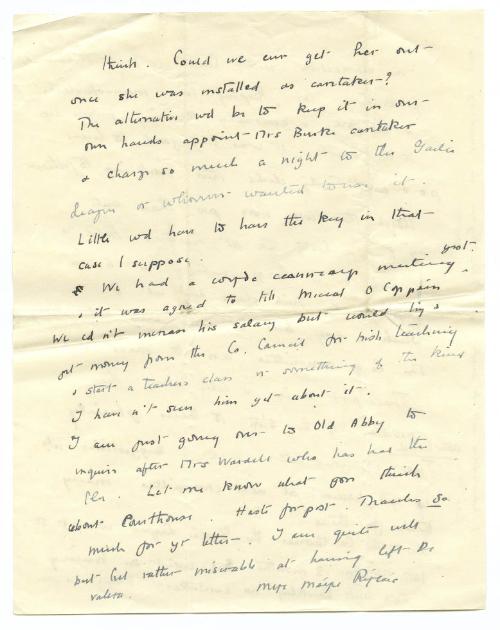 think. Could we ever get her out
once she was installed as caretaker?
The alternative wd be to keep it in our
own hands appoint Mrs Burke caretaker
& charge so much a night to the Gaelic
League or whoever wanted to use it.
Little wd have to have the key in that
case I suppose.
We had a meeting yest.
& it was agreed to tell O Coppain
we cdn't increase his salary but would try &
get money from the Co. Council for Irish teaching
& start a teachers class or something of the kind
I haven't seen him yet about it.
I am just going over to Old Abbey to
inquire after Mrs Wardell who has had the
flu. Let me know what you think
about Courthouse. Haste for post. Thanks so
much for yr letter. I am quite well
but feel rather miserable at having left De
Valera.